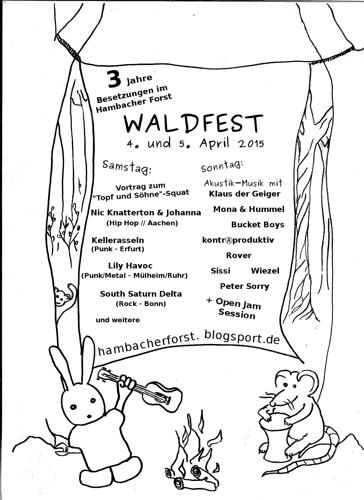 3 Jahre
Besetzungen im
Hambacher Forst
WALDFEST
4. und 5. April 2015
Samstag:
Vortrag zum
"Topf und Söhne"-Squat
Nic Knatterton & Johanna
(Hip Hop // Aachen)
Kellerasseln
(Punk - Erfurt)
Lily Havoc
(Punk/Metal - Mülheim/Ruhr)
South Saturn Delta
(Rock - Bonn)
und weitere
Sonntag:
Akustik-Musik mit
Klaus der Geiger
Mona & Hummel
Bucket Boys
kontr@produktiv
Rover
Sissi Wiezel
Peter Sorry
+ Open Jam
Session
hambacherforst. blogsport.de